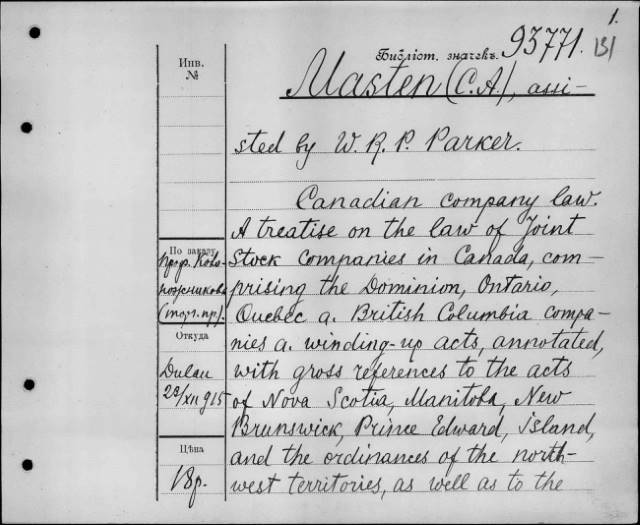 1.
Библіот. значекъ. 93771.
131
Инв.
№
Masten (C.A.), assi-
sted by W. R. P. Parker.
Canadian company law.
A treatise on the law of Joint
Stock companies in Canada, com-
prising the Dominion, Ontario,
Quebec a. British Columbia compa-
nies a. winding-up acts, annotated,
with gross references to the acts
of Nova Scotia, Manitoba, New
Brunswick, Prince Edward, island,
and the ordinances of the north-
west territories, as well as to the
По заказу
проф. Ново-
пожникова
(торг. пр.).
Откуда
Dulau
23/XII 915
Цѣна
18р.